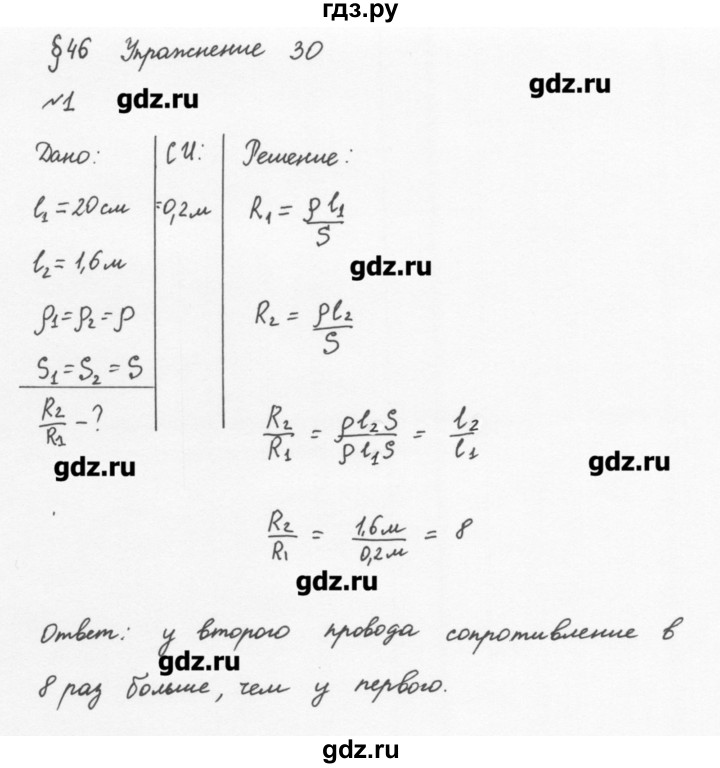 гдз.ру
§46 Упражнение 30
gdz.ru
№1 gdz.ru
Дано: СИ: Решение:
l₁ = 20 см =0,2 м R₁ = ρl₁/S
gdz.ru
l₂ = 1,6 м
ρ₁ = ρ₂ = ρ R₂ = ρl₂/S
S₁ = S₂ = S
R₂/R₁ - ? R₂/R₁ = ρl₂S/ρl₁S = l₂/l₁
gdz.ru gdz.ru
R₂/R₁ = 1,6 м/0,2 м = 8
gdz.ru
Ответ: у второго провода сопротивление в
gdz.ru
8 раз больше, чем у первого.
gdz.ru